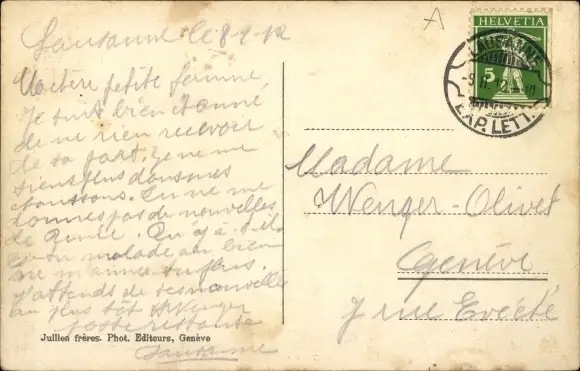 Lausanne le 8 9 12
Ma chère petite femme,
Je suis bien étonné
de ne rien recevoir
de ta part. Je ne me
tiens plus dans mes
chaussons. Tu ne me
donnes pas de nouvelles
de Renée. Qu'y a-t-il
es-tu malade ou bien
ne m'aimes tu plus.
J'attends de tes nouvelles
au plus tôt HWenger
poste restante
Lausanne
Jullien frères. Phot. Editeurs, Genève
A
HELVETIA
5
LAUSANNE
EXP. LETT.
Madame
Wenger-Olivet
Genève
7 rue